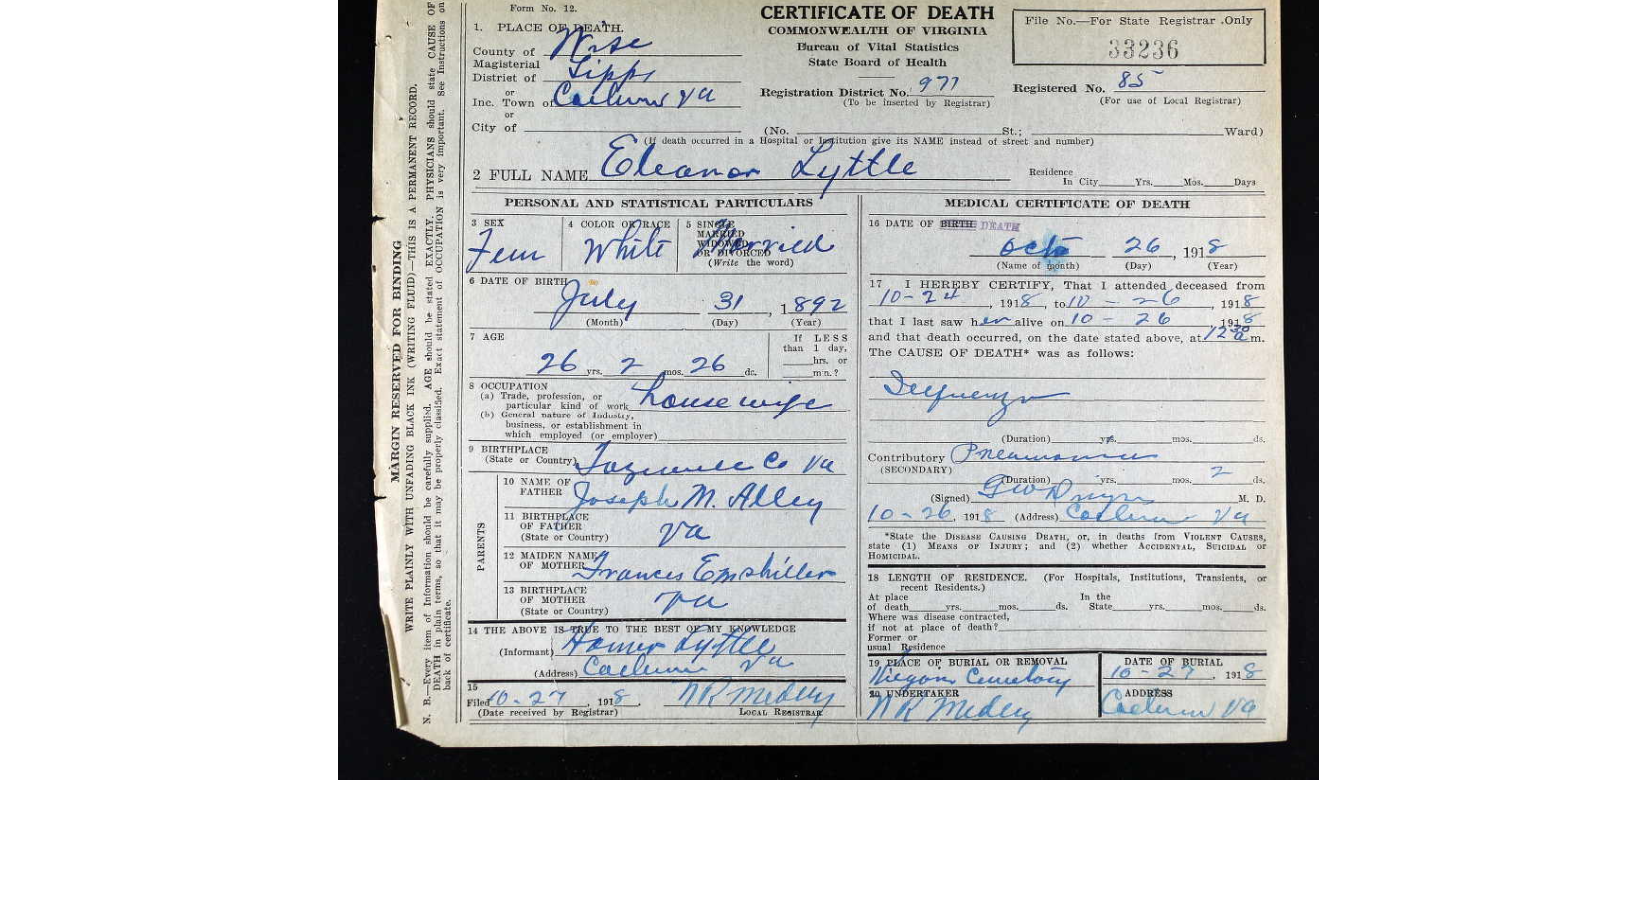 Form No. 12.
CERTIFICATE OF DEATH
COMMONWEALTH OF VIRGINIA
Bureau of Vital Statistics
State Board of Health
File No.—For State Registrar Only
33236
1. PLACE OF DEATH.
County of Wise
Magisterial
District of Lipps
or
Inc. Town of Coeburn Va
or
City of
Registration District No. 977
(To be inserted by Registrar)
Registered No. 85
(For use of Local Registrar)
(No. St.; Ward)
(If death occurred in a Hospital or Institution give its NAME instead of street and number)
2 FULL NAME Eleanor Lyttle
Residence
In City Yrs. Mos. Days
PERSONAL AND STATISTICAL PARTICULARS
3 SEX
Fem
4 COLOR OR RACE
White
5 SINGLE
MARRIED
WIDOWED
OR DIVORCED
(Write the word)
Married
6 DATE OF BIRTH
July 31, 1892
(Month) (Day) (Year)
7 AGE
26 yrs. 2 mos. 26 ds.
If LESS
than 1 day,
hrs. or
min.?
8 OCCUPATION
(a) Trade, profession, or
particular kind of work housewife
(b) General nature of Industry,
business, or establishment in
which employed (or employer)
9 BIRTHPLACE
(State or Country) Tazewell Co Va
PARENTS
10 NAME OF
FATHER Joseph M. Alley
11 BIRTHPLACE
OF FATHER
(State or Country) Va
12 MAIDEN NAME
OF MOTHER Frances Empshiller
13 BIRTHPLACE
OF MOTHER
(State or Country) Va
14 THE ABOVE IS TRUE TO THE BEST OF MY KNOWLEDGE
(Informant) Homer Lyttle
(Address) Coeburn Va
15
Filed 10-27, 1918 NR Medley
(Date received by Registrar) LOCAL REGISTRAR
MEDICAL CERTIFICATE OF DEATH
16 DATE OF BIRTH DEATH
Oct 26, 1918
(Name of month) (Day) (Year)
17 I HEREBY CERTIFY, That I attended deceased from
10-24, 1918, to 10-26, 1918
that I last saw her alive on 10-26 1918
and that death occurred, on the date stated above, at m.
The CAUSE OF DEATH* was as follows:
Influenza
(Duration) yrs. mos. ds.
Contributory Pneumonia
(SECONDARY)
(Duration) yrs. mos. 2 ds.
(Signed) M. D.
10-26, 1918 (Address) Coeburn Va
*State the DISEASE CAUSING DEATH, or, in deaths from VIOLENT CAUSES,
state (1) MEANS OF INJURY; and (2) whether ACCIDENTAL, SUICIDAL or
HOMICIDAL.
18 LENGTH OF RESIDENCE. (For Hospitals, Institutions, Transients, or
recent Residents.)
At place In the
of death yrs. mos. ds. State yrs. mos. ds.
Where was disease contracted,
if not at place of death?
Former or
usual Residence
19 PLACE OF BURIAL OR REMOVAL
Cemetery
DATE OF BURIAL
10-27, 1918
20 UNDERTAKER
NR Medley
ADDRESS
Coeburn Va
MARGIN RESERVED FOR BINDING
WRITE PLAINLY WITH UNFADING BLACK INK (WRITING FLUID)—THIS IS A PERMANENT RECORD.
N. B.—Every item of Information should be carefully supplied. AGE should be stated EXACTLY. PHYSICIANS should state CAUSE OF
DEATH in plain terms, so that it may be properly classified. Exact statement of OCCUPATION is very important. See Instructions on
back of certificate.